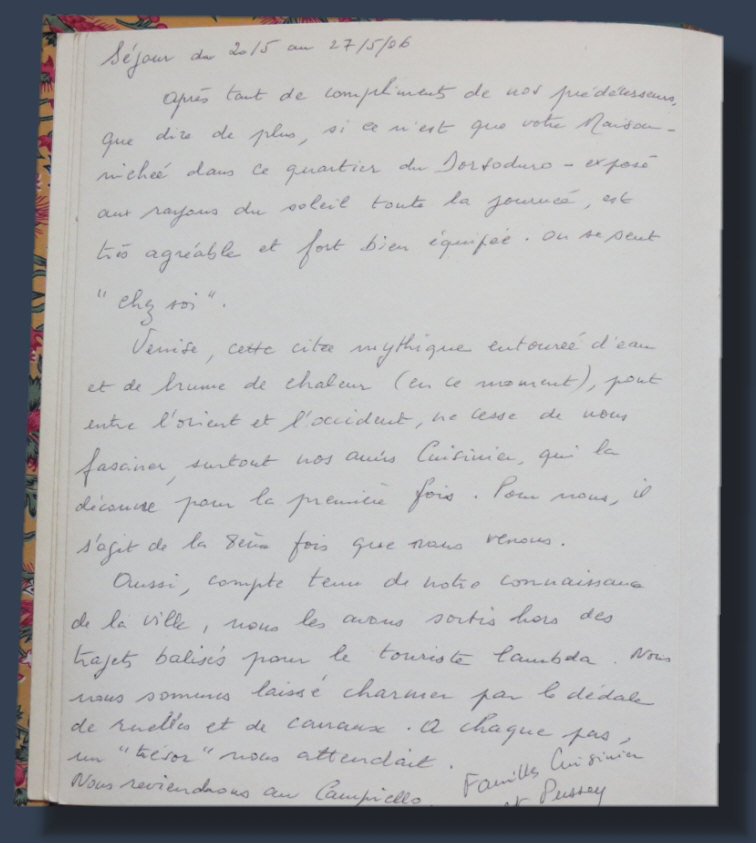 Séjour du 20/5 au 27/5/06
Après tant de compliments de nos prédécesseurs,
que dire de plus, si ce n'est que votre Maison -
nicheé dans ce quartier du Dorsoduro - exposé
aux rayons du soleil toute la journeé, est
très agréable et fort bien équipée. On se sent
"chez soi".
Venise, cette citée mythique entoureé d'eau
et de brume de chaleur (en ce moment), pont
entre l'orient et l'occident, ne cesse de nous
fasciner, surtout nos amis Cuisinier, qui la
découvre pour la première fois. Pour nous, il
s'agit de la 8ème fois que nous venons.
Aussi, compte tenu de notre connaissance
de la ville, nous les avons sortis hors des
trajets balisés pour le touriste lambda. Nous
nous sommes laissé charmer par le dédale
de ruelles et de canaux. A chaque pas,
un "trésor" nous attendait.
Nous reviendrons au Campiello.
Familles Cuisinier
et